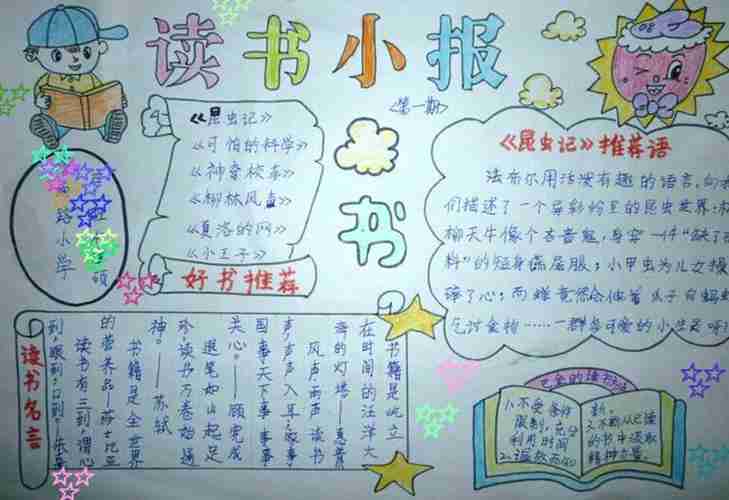 读书小报
<第一期>
《昆虫记》
《可怕的科学》
《神奇校车》
《柳林风声》
《夏洛的网》
《小王子》
好书推荐
书
路小学
硕
《昆虫记》推荐语
法布尔用活泼有趣的语言,向
们描述了一个异彩纷呈的昆虫世界:
柳天牛像个吝啬鬼,身穿一件“缺了
料”的短身燕尾服;小甲虫为儿女操
碎了心;而蝉竟然会伸着爪子向蚂
乞讨食物……一群多可爱的小生灵呀
读书名言
书籍是屹立
在时间的汪洋大
海的灯塔——惠普
风声雨声读书
声,声声入耳;家事
国事天下事事事
关心。——顾完成
退笔如山起足
珍,读书万卷始通
神。——苏轼
书籍是全世界
的营养品——莎士比亚
读书有三到谓心
到,眼到,口到。
巴金的读书法
1.不受条件
限制,充分
利用时间
2.温故而知
新。
2.不断从已读
的书中汲取
精神力量。